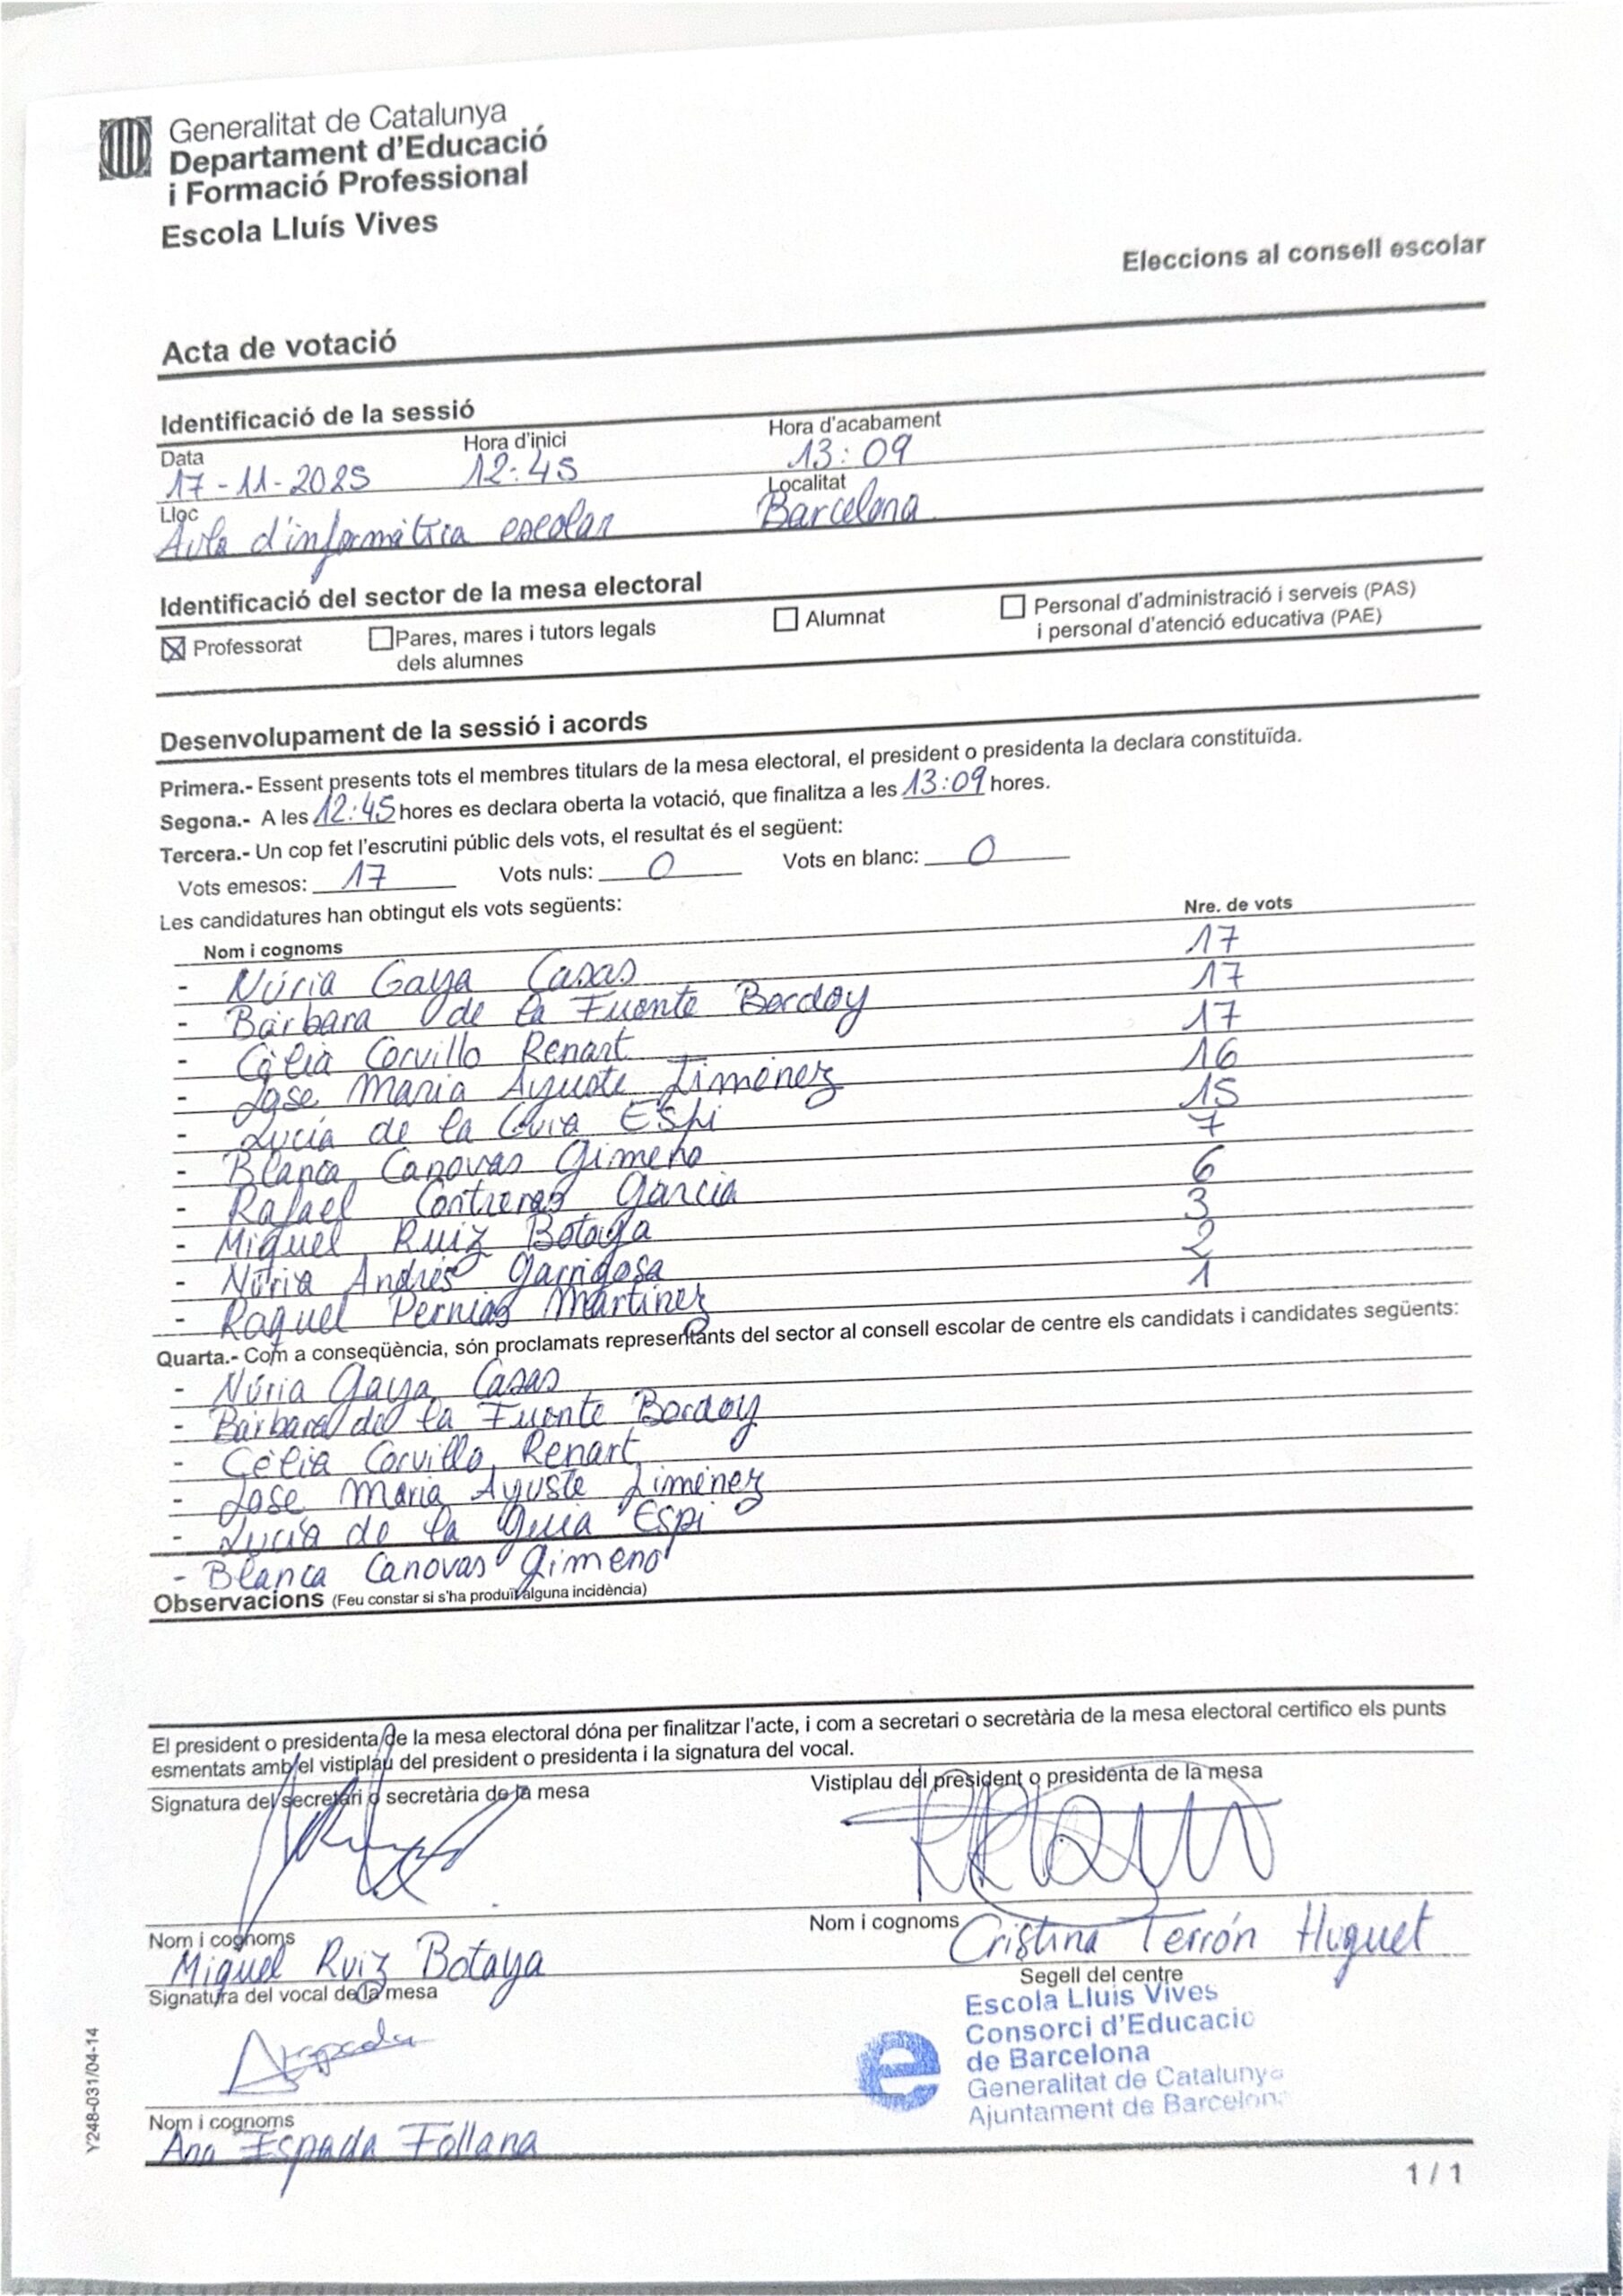 Generalitat de Catalunya
Departament d'Educació
i Formació Professional
Escola Lluís Vives
Eleccions al consell escolar
Acta de votació
Identificació de la sessió
Data Hora d'inici Hora d'acabament
17-11-2025 12:45 13:09
Lloc Localitat
Aula d'informàtica escolar Barcelona
Identificació del sector de la mesa electoral
Professorat Pares, mares i tutors legals dels alumnes Alumnat Personal d'administració i serveis (PAS) i personal d'atenció educativa (PAE)
Desenvolupament de la sessió i acords
Primera.- Essent presents tots el membres titulars de la mesa electoral, el president o presidenta la declara constituïda.
Segona.- A les 12:45 hores es declara oberta la votació, que finalitza a les 13:09 hores.
Tercera.- Un cop fet l'escrutini públic dels vots, el resultat és el següent:
Vots emesos: 17 Vots nuls: 0 Vots en blanc: 0
Les candidatures han obtingut els vots següents:
Nom i cognoms Nre. de vots
- Núria Gaya Casas 17
- Bàrbara de la Fuente Bordoy 17
- Cèlia Corvillo Renart 17
- Jose Maria Ayuste Jiménez 16
- Lucía de la Guia Espi 15
- Blanca Canovas Gimeno 7
- Rafael Contreras Garcia 6
- Miguel Ruiz Botaya 3
- Núria Andrés Garrigosa 2
- Raquel Pernias Martinez 1
Quarta.- Com a conseqüència, són proclamats representants del sector al consell escolar de centre els candidats i candidates següents:
- Núria Gaya Casas
- Bàrbara de la Fuente Bordoy
- Cèlia Corvillo Renart
- Jose Maria Ayuste Jiménez
- Lucía de la Guia Espi
- Blanca Canovas Gimeno
Observacions (Feu constar si s'ha produït alguna incidència)
El president o presidenta de la mesa electoral dóna per finalitzar l'acte, i com a secretari o secretària de la mesa electoral certifico els punts
esmentats amb el vistiplau del president o presidenta i la signatura del vocal.
Signatura del secretari o secretària de la mesa Vistiplau del president o presidenta de la mesa
Nom i cognoms Nom i cognoms
Miguel Ruiz Botaya Cristina Terrón Huguet
Signatura del vocal de la mesa Segell del centre
Escola Lluis Vives
Consorci d'Educació
de Barcelona
Generalitat de Catalunya
Ajuntament de Barcelona
Nom i cognoms
Ana Espada Follana
Y248-031/04-14
1 / 1